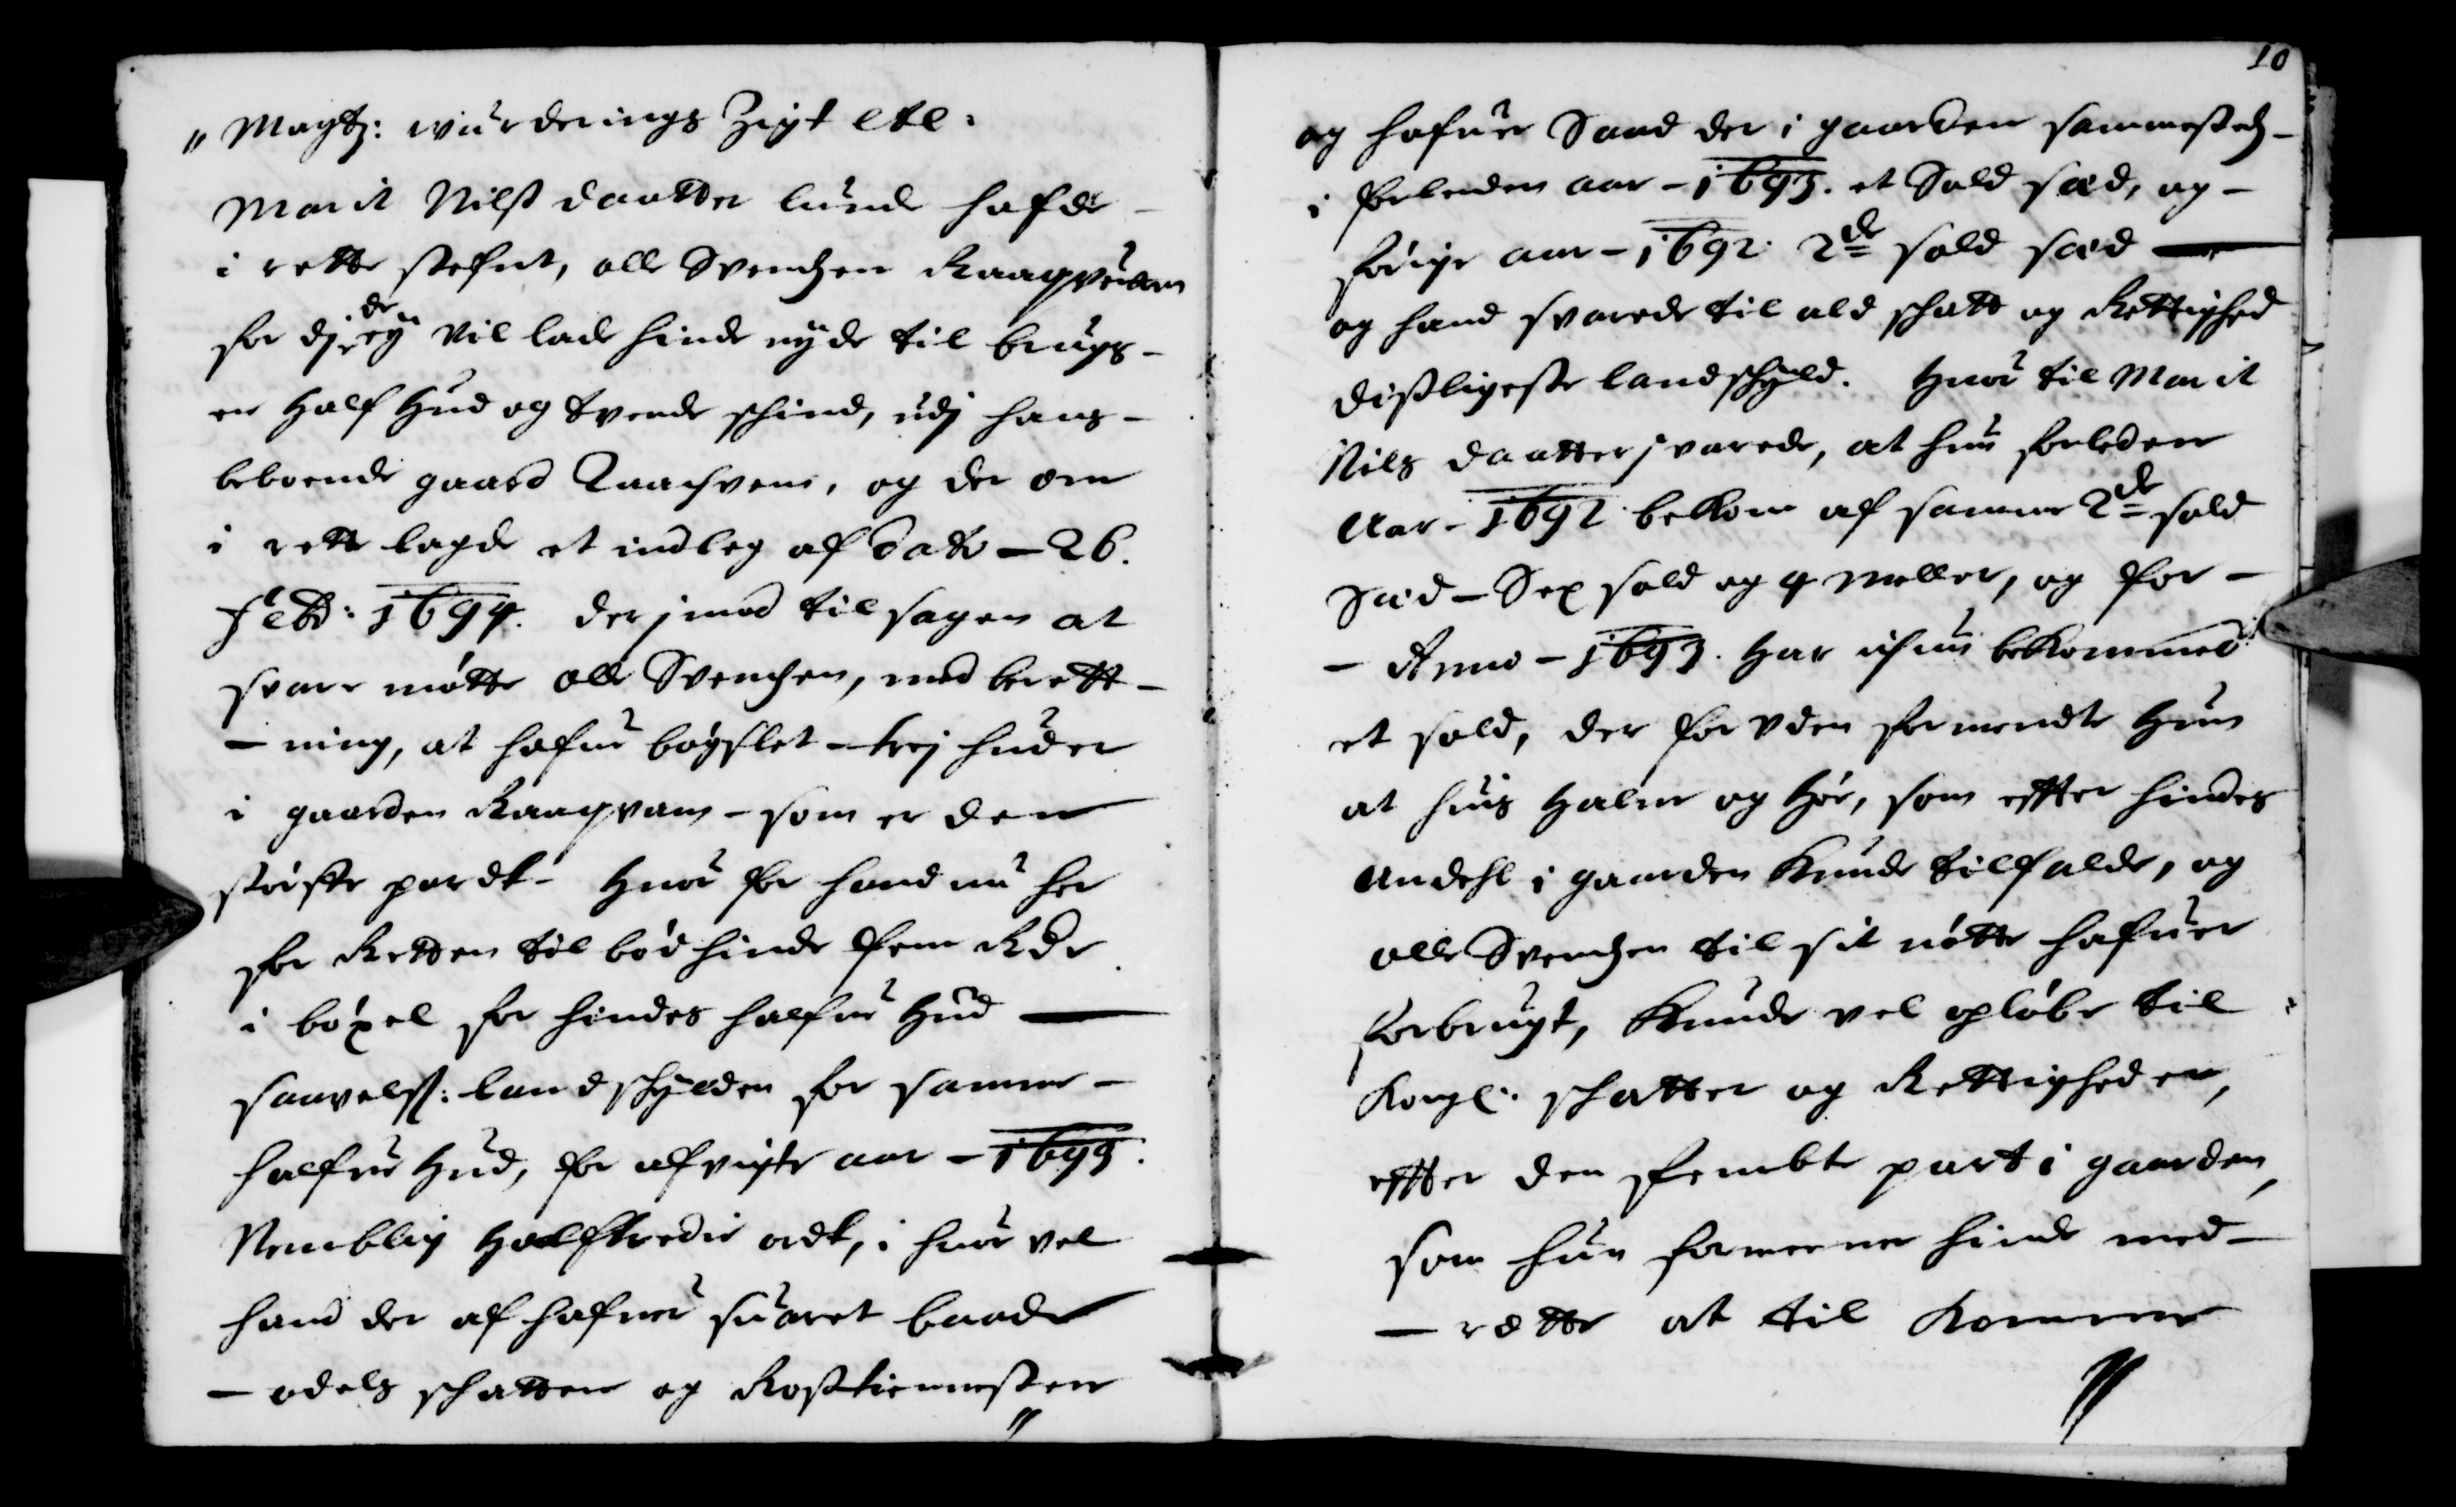 " Magtz: wurderings Zigt etc:
Marit Nilss daatter lunde hafde -
i rette stefnt, olle Svendsen Raaqvam
for dj de ej vil lade hinde nyde til brugs -
en half hud og tvende schind, udj hans -
beboende gaard Raachvem, og der om
i rette lagde et indleg af dato - 26.
Feb: 1694. der jmod til sagen at
svare møtte olle Svendsen, med berett -
- ning, at hafue bøgslet - trej huder
i gaarden Raaqvam - som er den
største pardt - huor for hand nu her
for Retten til bød hinde fem Rdr
i bøxel for hindes halfue hud -
saavelss: landschylden for samme -
halfue hud, for afvigte aar - 1693.
Nemblig halftredie ordt, i huor vel
hand der af hafuer suaret baade
- odels schatten og Rosstiennesten
"
10
og hafuer Saad der i gaarden sammestedz -
i forleeden aar - 1693. et Sold sæd, og -
forige aar - 1692. 2de sold sæd -
og hand svarede til ald schatt og Rettighed
disligeste landschyld. Huor til Marit
Nils daatter svarede, at hun forleden
Aar - 1692 bekom af samme 2de sold
Sæd - Sex sold og 4 meller, og for -
- Anno - 1693. har hun bekommed
et sold, der for uden formendte hun
at huis halm og Hør, som effter hindes
Andehl i gaarden kunde tilfalde, og
olle Svendsen til sit nøtte hafuer
forbrugt, kunde vel opløbe til
Kongl: schatter og Rettigheder,
effter den fembte part i gaarden,
som hun formeener hinde med -
- rette at til komme
"